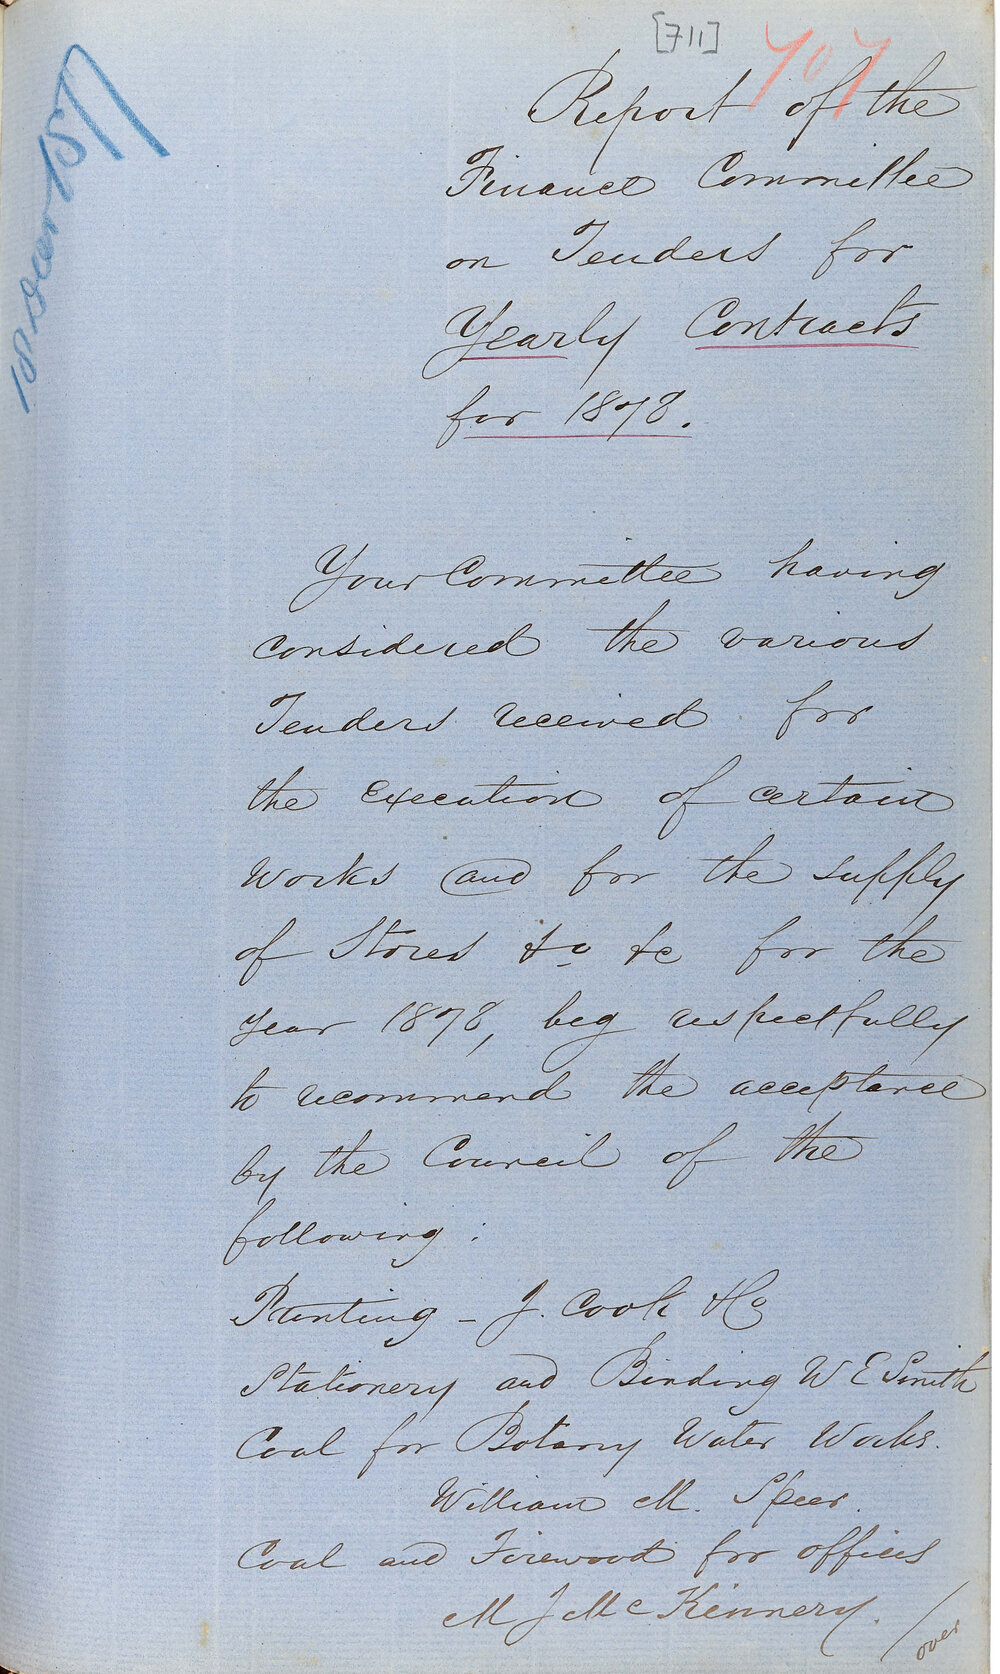 [711]
707
10 Decer 1877
Report of the
Finance Committee
on Tenders for
Yearly Contracts
for 1878.
Your Committee having
considered the various
Tenders received for
the execution of certain
Works and for the supply
of Stores &c &c for the
year 1878, beg respectfully
to recommend the acceptance
by the Council of the
following :
Printing - J. Cook & Co
Stationery and Binding W E Smith
Coal for Botany Water Works.
William M. Speer.
Coal and Firewood for offices
M J McKinnery.
over